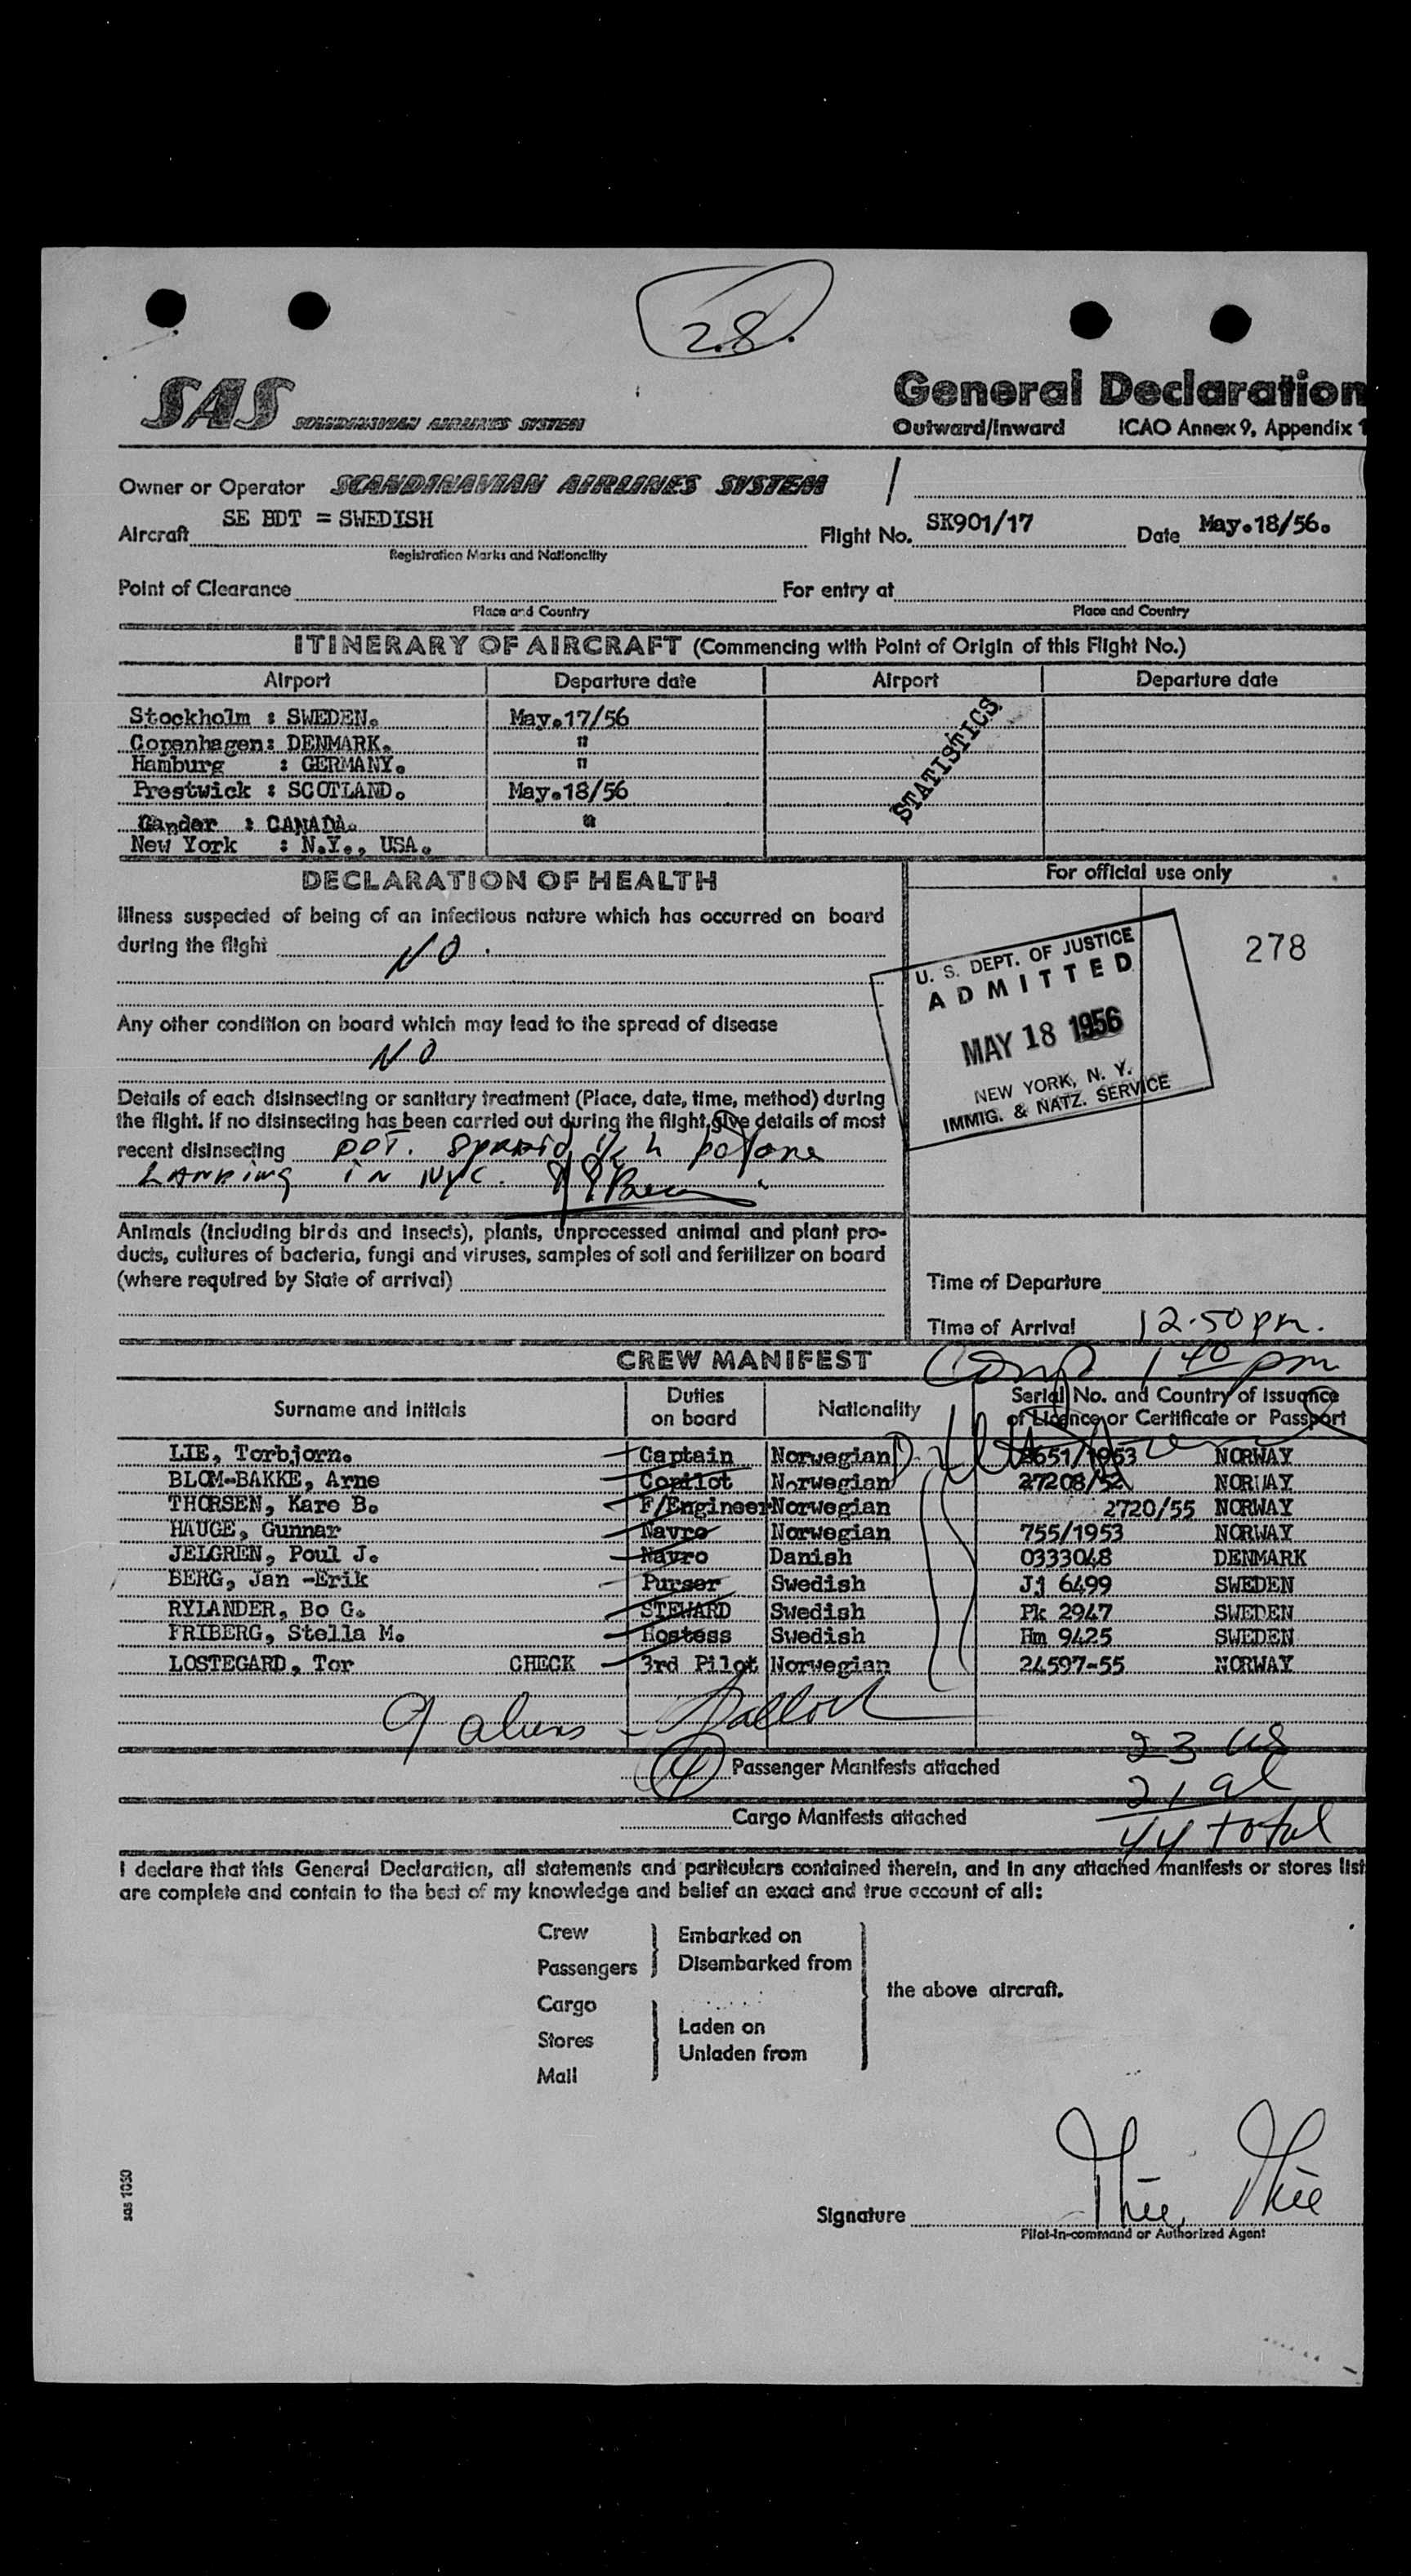 28.
SAS SCANDINAVIAN AIRLINES SYSTEM
General Declaration
Outward/Inward ICAO Annex 9, Appendix 1
Owner or Operator SCANDINAVIAN AIRLINES SYSTEM /
Aircraft SE BDT = SWEDISH Flight No. SK901/17 Date May.18/56.
Registration Marks and Nationality
Point of Clearance For entry at
Place and Country Place and Country
ITINERARY OF AIRCRAFT (Commencing with Point of Origin of this Flight No.)
Airport Departure date Airport Departure date
Stockholm : SWEDEN. May.17/56
Copenhagen: DENMARK. "
Hamburg : GERMANY. "
Prestwick : SCOTLAND. May.18/56
Gander : CANADA. "
New York : N.Y., USA.
STATISTICS
DECLARATION OF HEALTH
Illness suspected of being of an infectious nature which has occurred on board
during the flight NO.
Any other condition on board which may lead to the spread of disease
NO
Details of each disinsecting or sanitary treatment (Place, date, time, method) during
the flight. If no disinsecting has been carried out during the flight, give details of most
recent disinsecting DDT. 1/2 h before
LANDING IN NYC.
Animals (including birds and insects), plants, unprocessed animal and plant pro-
ducts, cultures of bacteria, fungi and viruses, samples of soil and fertilizer on board
(where required by State of arrival)
For official use only
278
U. S. DEPT. OF JUSTICE
ADMITTED
MAY 18 1956
NEW YORK, N. Y.
IMMIG. & NATZ. SERVICE
Time of Departure
Time of Arrival 12.50 pm.
Comp 1 40 pm
CREW MANIFEST
Surname and Initials Duties on board Nationality Serial No. and Country of issuance of Licence or Certificate or Passport
LIE, Torbjorn. Captain Norwegian 651/1953 NORWAY
BLOM-BAKKE, Arne Copilot Norwegian 27208/52 NORWAY
THORSEN, Kare B. F/Engineer Norwegian 2720/55 NORWAY
HAUGE, Gunnar Navro Norwegian 755/1953 NORWAY
JELGREN, Poul J. Navro Danish 0333048 DENMARK
BERG, Jan -Erik Purser Swedish Jj 6499 SWEDEN
RYLANDER, Bo G. STEWARD Swedish Pk 2947 SWEDEN
FRIBERG, Stella M. Hostess Swedish Hm 9425 SWEDEN
LOSTEGARD, Tor CHECK 3rd Pilot Norwegian 24597-55 NORWAY
9 aliens -
4 Passenger Manifests attached
23 US
21 al
44 total
Cargo Manifests attached
I declare that this General Declaration, all statements and particulars contained therein, and in any attached manifests or stores list
are complete and contain to the best of my knowledge and belief an exact and true account of all:
Crew
Passengers
Embarked on
Disembarked from
Cargo
Stores
Mail
Laden on
Unladen from
the above aircraft.
Signature
Pilot-in-command or Authorized Agent
sas 1030